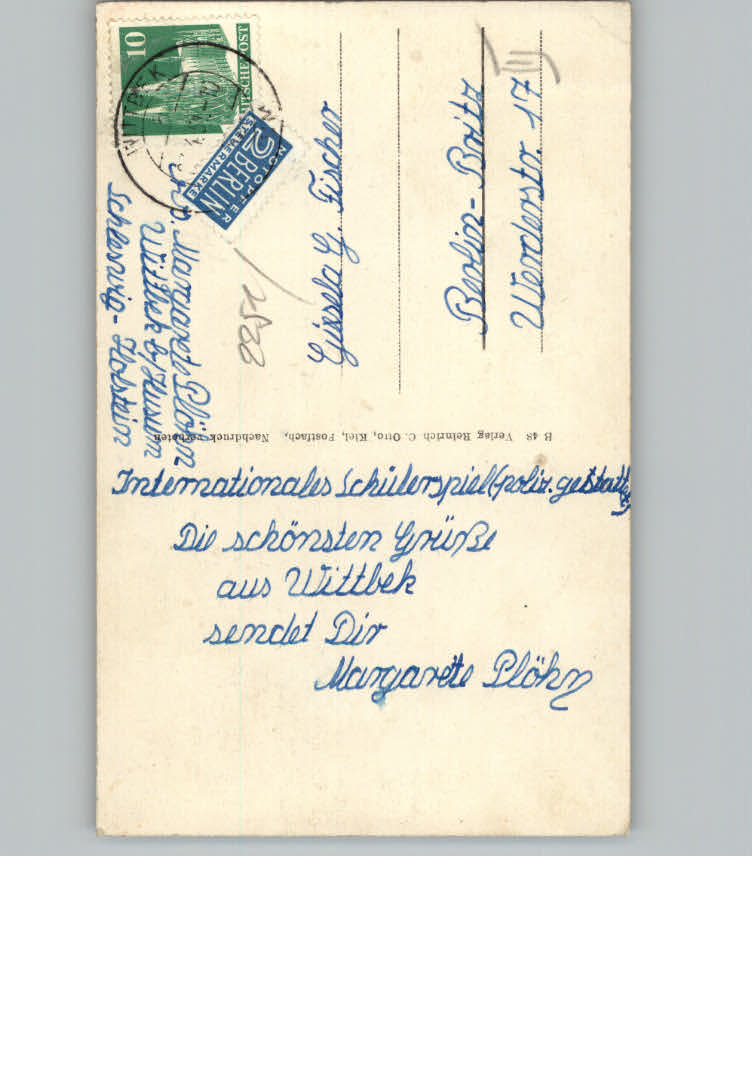 10
DEUTSCHE POST
WITTBEK
NOTOPFER
2 BERLIN
STEUERMARKE
Margarete Plöhn
Wittbek b/Husum
Schleswig-Holstein
Gisela G. Fischer
Berlin-Britz
Werderstr. 17
B 48 Verlag Heinrich C. Otto, Kiel, Postfach, Nachdruck verboten
Internationales Schülerspiel (poliz. gestattet)
Die schönsten Grüße
aus Wittbek
sendet Dir
Margarete Plöhn